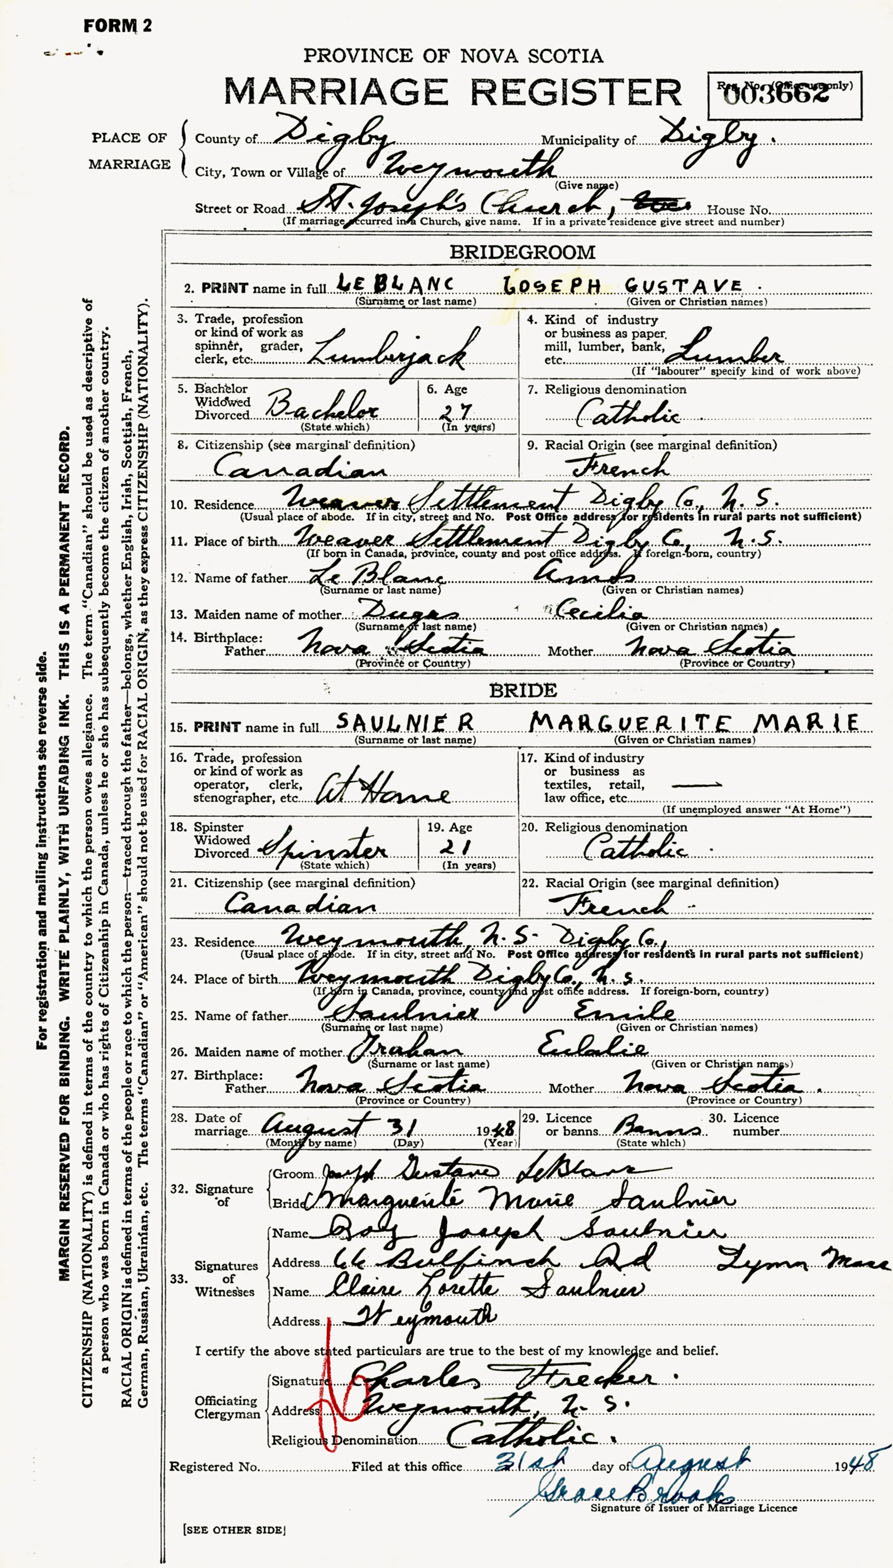 FORM 2
PROVINCE OF NOVA SCOTIA
MARRIAGE REGISTER
Reg. No. (Office use only)
003662
PLACE OF MARRIAGE
County of Digby Municipality of Digby.
City, Town or Village of Weymouth
(Give name)
Street or Road St. Joseph's Church, House No.
(If marriage occurred in a Church, give name. If in a private residence give street and number)
BRIDEGROOM
2. PRINT name in full LEBLANC JOSEPH GUSTAVE.
(Surname or last name) (Given or Christian names)
3. Trade, profession or kind of work as spinner, grader, clerk, etc. Lumberjack
4. Kind of industry or business as paper, mill, lumber, bank, etc. Lumber
(If "labourer" specify kind of work above)
5. Bachelor Widowed Divorced Bachelor
(State which)
6. Age 27
(In years)
7. Religious denomination Catholic
8. Citizenship (see marginal definition) Canadian
9. Racial Origin (see marginal definition) French
10. Residence Weaver Settlement Digby Co., N. S.
(Usual place of abode. If in city, street and No. Post Office address for residents in rural parts not sufficient)
11. Place of birth Weaver Settlement Digby Co., N. S.
(If born in Canada, province, county and post office address. If foreign-born, country)
12. Name of father Le Blanc Amos
(Surname or last name) (Given or Christian names)
13. Maiden name of mother Dugas Cecilia
(Surname or last name) (Given or Christian names)
14. Birthplace: Father Nova Scotia Mother Nova Scotia
(Province or Country) (Province or Country)
BRIDE
15. PRINT name in full SAULNIER MARGUERITE MARIE
(Surname or last name) (Given or Christian names)
16. Trade, profession or kind of work as operator, clerk, stenographer, etc. At Home
17. Kind of industry or business as textiles, retail, law office, etc. —
(If unemployed answer "At Home")
18. Spinster Widowed Divorced Spinster
(State which)
19. Age 21
(In years)
20. Religious denomination Catholic.
21. Citizenship (see marginal definition) Canadian
22. Racial Origin (see marginal definition) French
23. Residence Weymouth, N. S. Digby Co.,
(Usual place of abode. If in city, street and No. Post Office address for residents in rural parts not sufficient)
24. Place of birth Weymouth Digby Co., N. S.
(If born in Canada, province, county and post office address. If foreign-born, country)
25. Name of father Saulnier Emile
(Surname or last name) (Given or Christian names)
26. Maiden name of mother Trahan Eulalie
(Surname or last name) (Given or Christian names)
27. Birthplace: Father Nova Scotia Mother Nova Scotia.
(Province or Country) (Province or Country)
28. Date of marriage August 31 1948
(Month by name) (Day) (Year)
29. Licence or banns Banns
(State which)
30. Licence number
32. Signature of
Groom Joseph Gustave LeBlanc
Bride Marguerite Marie Saulnier
33. Signatures of Witnesses
Name Roy Joseph Saulnier
Address 66 Bulfinch Rd Lynn Mass
Name Claire Lorette Saulnier
Address Weymouth
I certify the above stated particulars are true to the best of my knowledge and belief.
Officiating Clergyman
Signature Charles Frecker.
Address Weymouth, N. S.
Religious Denomination Catholic.
Registered No. Filed at this office 31st day of August 1948
Grace Brooks
Signature of Issuer of Marriage Licence
[SEE OTHER SIDE]
For registration and mailing instructions see reverse side.
MARGIN RESERVED FOR BINDING. WRITE PLAINLY, WITH UNFADING INK. THIS IS A PERMANENT RECORD.
CITIZENSHIP (NATIONALITY) is defined in terms of the country to which the person owes allegiance. The term "Canadian" should be used as descriptive of
a person who was born in Canada or who has rights of Citizenship in Canada, unless he or she has subsequently become the citizen of another country.
RACIAL ORIGIN is defined in terms of the people or race to which the person—traced through the father—belongs, whether English, Irish, Scottish, French,
German, Russian, Ukrainian, etc. The terms "Canadian" or "American" should not be used for RACIAL ORIGIN, as they express CITIZENSHIP (NATIONALITY).